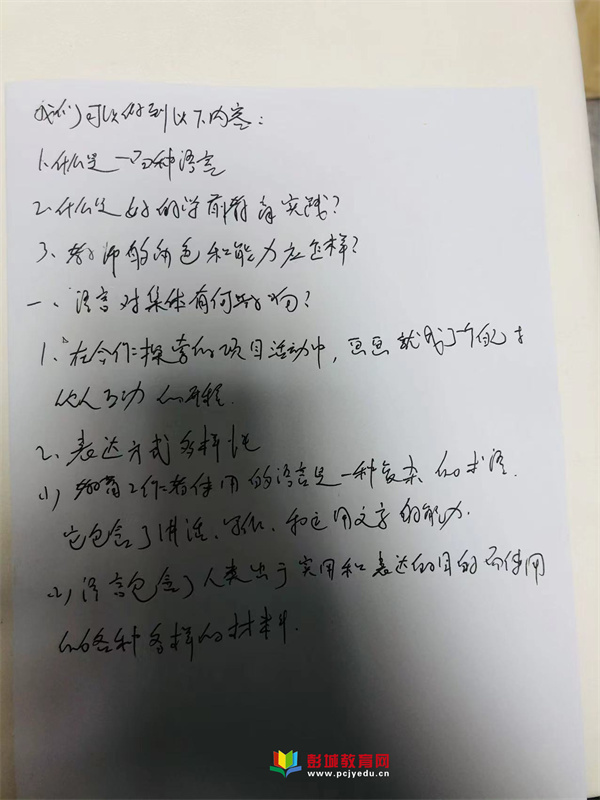 我们可以做到以下内容:
1、什么是一百种语言
2、什么是好的学前教育实践?
3、教师的角色和能力应怎样?
一、语言对集体有何影响?
1、在合作探索的项目活动中,画画就成了个自己与
他人互动的历程.
2、表达方式多样性
(1)教育工作者使用的语言是一种复杂的术语.
它包含了讲话、写作、和运用文字的能力.
(2)语言包含了人类出于实用和表达的目的而使用
的各种各样的材料.
彭城教育网
www.pcjyedu.cn